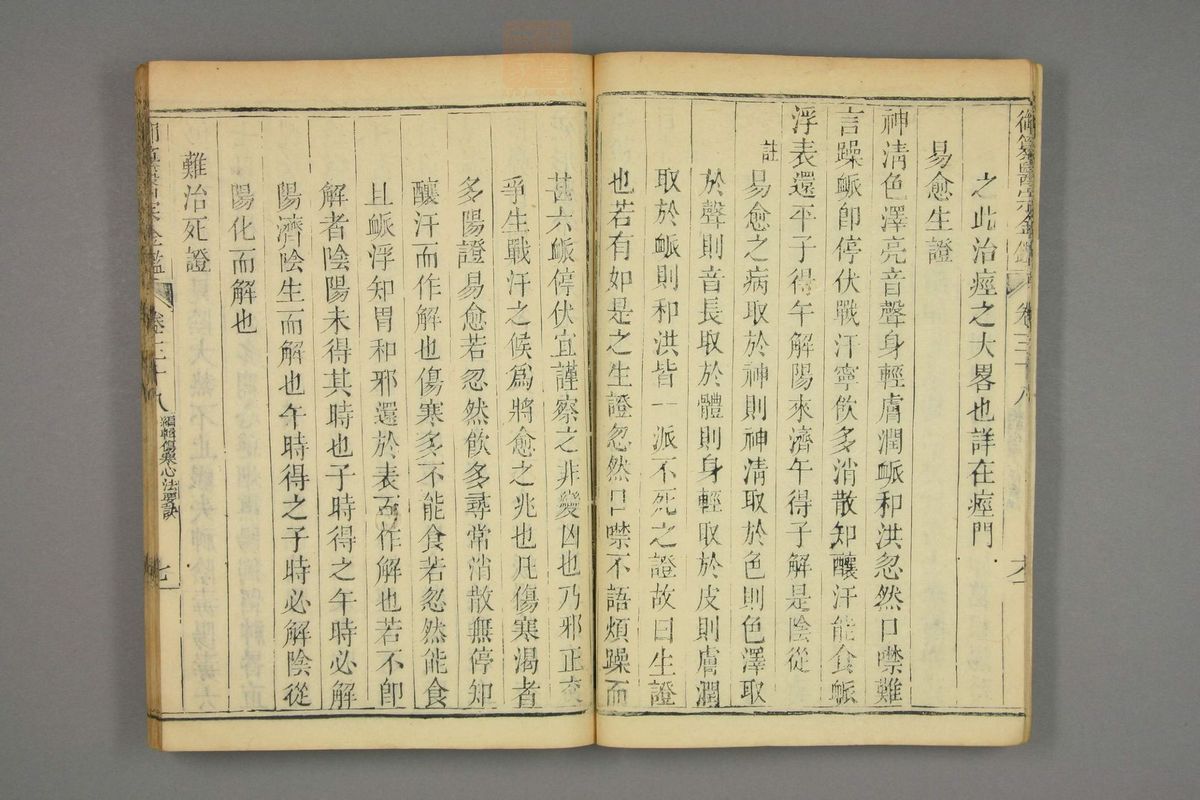 御纂醫宗金鑑 卷三十八 六
之此治痙之大畧也詳在痙門
易愈生證
神清色澤亮音聲身輕膚潤䘑和洪忽然口噤難
言躁䘑卽停伏戰汗寧飲多消散知釀汗能食䘑
浮表還平子得午解陽來濟午得子解是陰從
註易愈之病取於神則神清取於色則色澤取
於聲則音長取於體則身輕取於皮則膚潤
取於䘑則和洪皆一派不死之證故曰生證
也若有如是之生證忽然口噤不語煩躁而
甚六䘑停伏宜謹察之非變凶也乃邪正交
爭生戰汗之候爲將愈之兆也凡傷寒渴者
多陽證易愈若忽然飲多尋常消散無停知
釀汗而作解也傷寒多不能食若忽然能食
且䘑浮知胃和邪還於表而作解也若不卽
解者陰陽未得其時也子時得之午時必解
陽濟陰生而解也午時得之子時必解陰從
陽化而解也
難治死證
御纂醫宗金鑑 卷三十八 編輯傷寒心法要訣 七